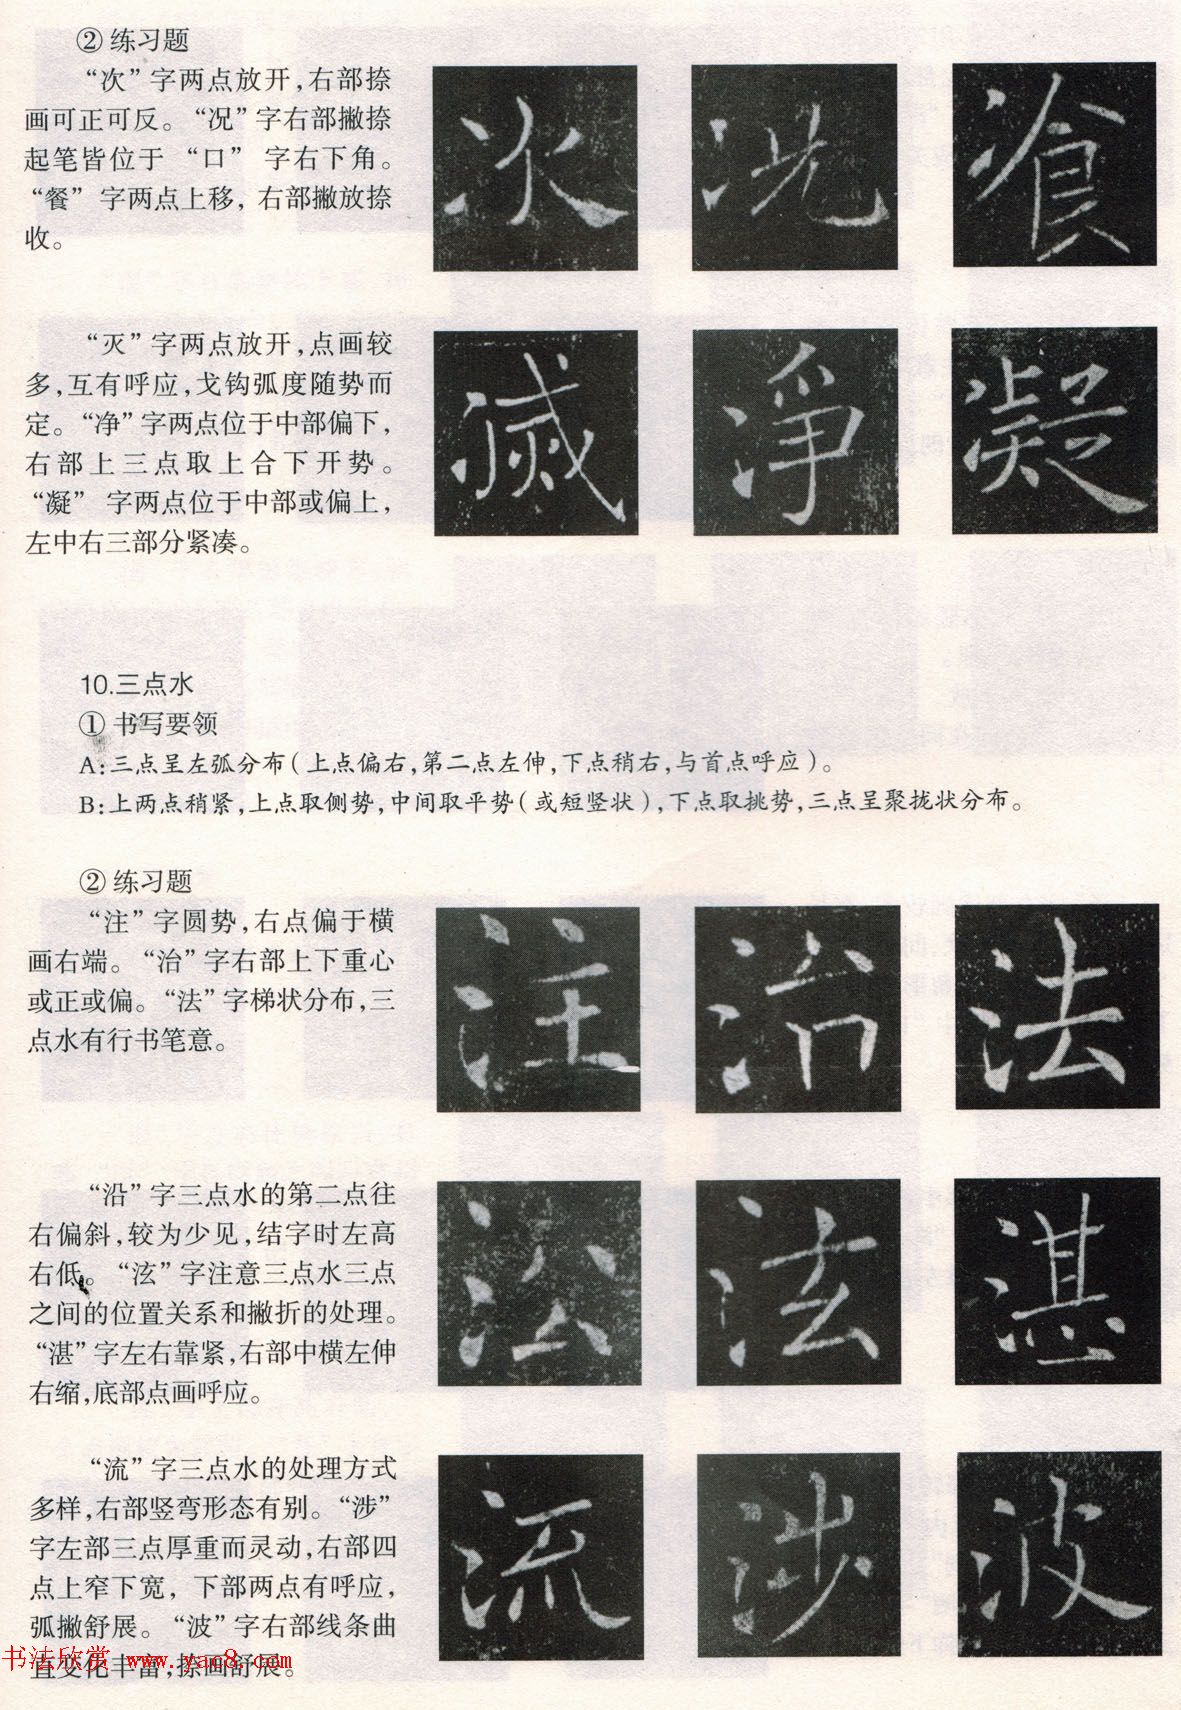 ② 练习题
“次”字两点放开,右部捺
画可正可反。“况”字右部撇捺
起笔皆位于 “口” 字右下角。
“餐” 字两点上移, 右部撇放捺
收。
“灭”字两点放开,点画较
多,互有呼应,戈钩弧度随势而
定。“净”字两点位于中部偏下,
右部上三点取上合下开势。
“凝” 字两点位于中部或偏上,
左中右三部分紧凑。
10.三点水
① 书写要领
A:三点呈左弧分布(上点偏右,第二点左伸,下点稍右,与首点呼应)。
B:上两点稍紧,上点取侧势,中间取平势(或短竖状),下点取挑势,三点呈聚拢状分布。
② 练习题
“注”字圆势,右点偏于横
画右端。“治”字右部上下重心
或正或偏。“法”字梯状分布,三
点水有行书笔意。
“沿”字三点水的第二点往
右偏斜,较为少见,结字时左高
右低。“泫”字注意三点水三点
之间的位置关系和撇折的处理。
“湛”字左右靠紧,右部中横左伸
右缩,底部点画呼应。
“流”字三点水的处理方式
多样,右部竖弯形态有别。“涉”
字左部三点厚重而灵动,右部四
点上窄下宽, 下部两点有呼应,
弧撇舒展。“波”字右部线条曲
直变化丰富,捺画舒展。
书法欣赏 www.yac8.com